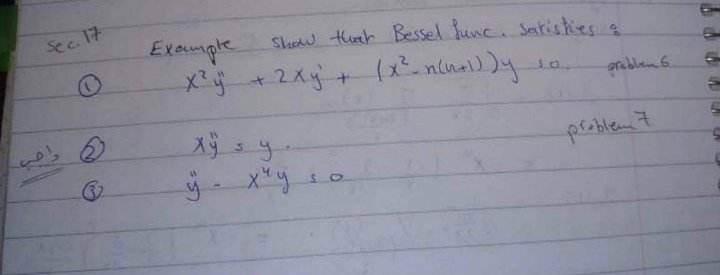 Sec. 17 Example show that Bessel func. satisfies :
① x² ÿ + 2xẏ + (x² - n(n+1))y = 0. problem 6
② xÿ = y. problem 7
③ ÿ - x⁴y = 0